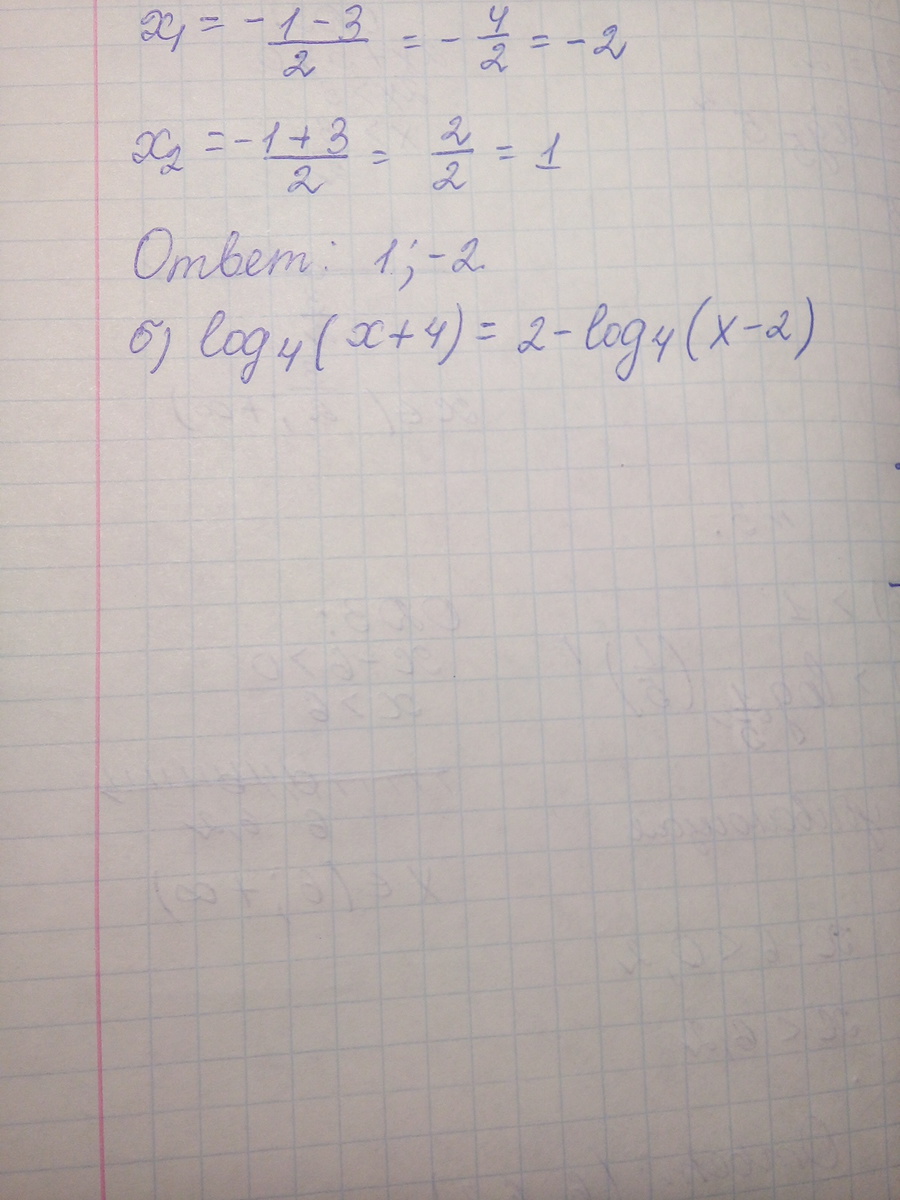 x₁ = -1-3/2 = -4/2 = -2
x₂ = -1+3/2 = 2/2 = 1
Ответ: 1; -2.
б) log₄(x+4) = 2-log₄(x-2)